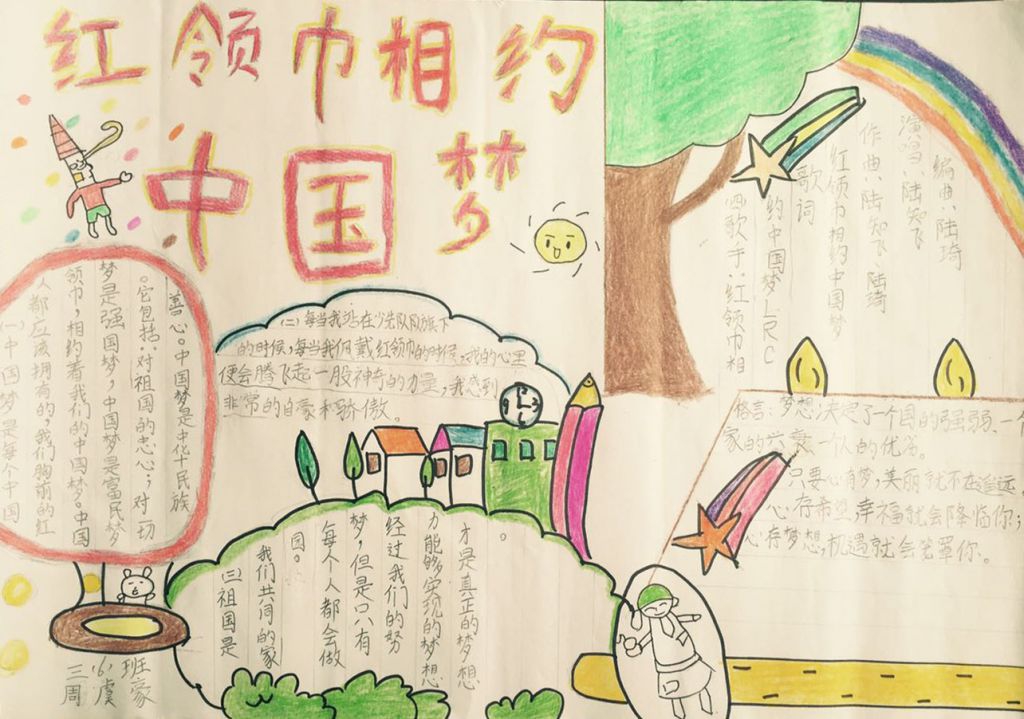 红领巾相约
中国梦
(一)中国梦是每个中国
人都应该拥有的,我们胸前的红
领巾,相约着我们的中国梦。中国
梦是强国梦,中国梦是富民梦
。它包括:对祖国的忠心;对一切
善心。中国梦是中华十民族
(二)每当我站在少先队队旗下
的时候,每当我们戴红领巾的时候,我的心里
便会腾飞起一股神奇的力量,我感到
非常的自豪和骄傲。
(三)祖国是
我们共同的家
园。
每个人都会做
梦,但是只有
经过我们的努
力能够实现的梦想
才是真正的梦想
。
歌手:红领巾相
约中国梦LRC
歌词
红领巾相约中国梦
作曲:陆知飞、陆琦
演唱:陆知飞
编曲:陆琦
格言:梦想决定了一个国的强弱、一个
家的兴衰、一个人的优劣。
只要心有梦,美丽就不在遥远。
心存希望,幸福就会降临你;
心存梦想,机遇就会笼罩你。
三(6)班
周虞豪